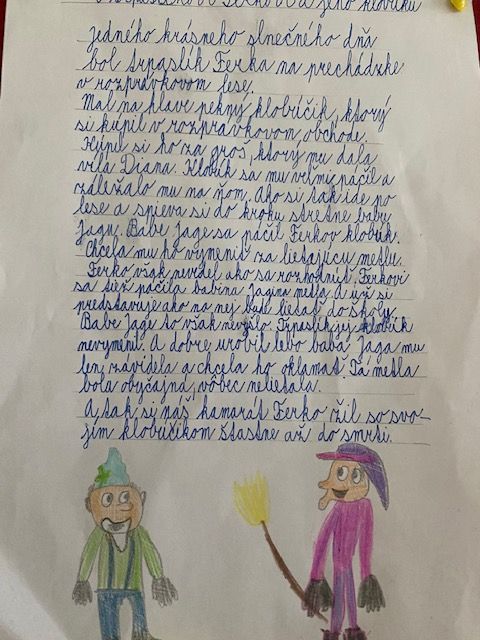 a jeho klobúku
Jedného krásneho slnečného dňa
bol trpaslík Ferko na prechádzke
v rozprávkovom lese.
Mal na hlave pekný klobúčik, ktorý
si kúpil v rozprávkovom obchode.
Kúpil si ho za groš, ktorý mu dala
víla Diana. Klobúk sa mu veľmi páčil a
záležalo mu na ňom. Ako si tak ide po
lese a spieva si do kroku stretne babu
Jagu. Babe Jage sa páčil Ferkov klobúk.
Chcela mu ho vymeniť za lietajúcu metlu.
Ferko však nevedel ako sa rozhodnúť. Ferkovi
sa tiež páčila babina Jagina metla a už si
predstavuje ako na nej bude lietať do školy.
Babe Jage to však nevyšlo. Trpaslík jej klobúk
nevymenil. A dobre urobil lebo baba Jaga mu
len závidela a chcela ho oklamať. Tá metla
bola obyčajná, vôbec nelietala.
A tak si náš kamarát Ferko žil so svo-
jím klobúčikom šťastne až do smrti.